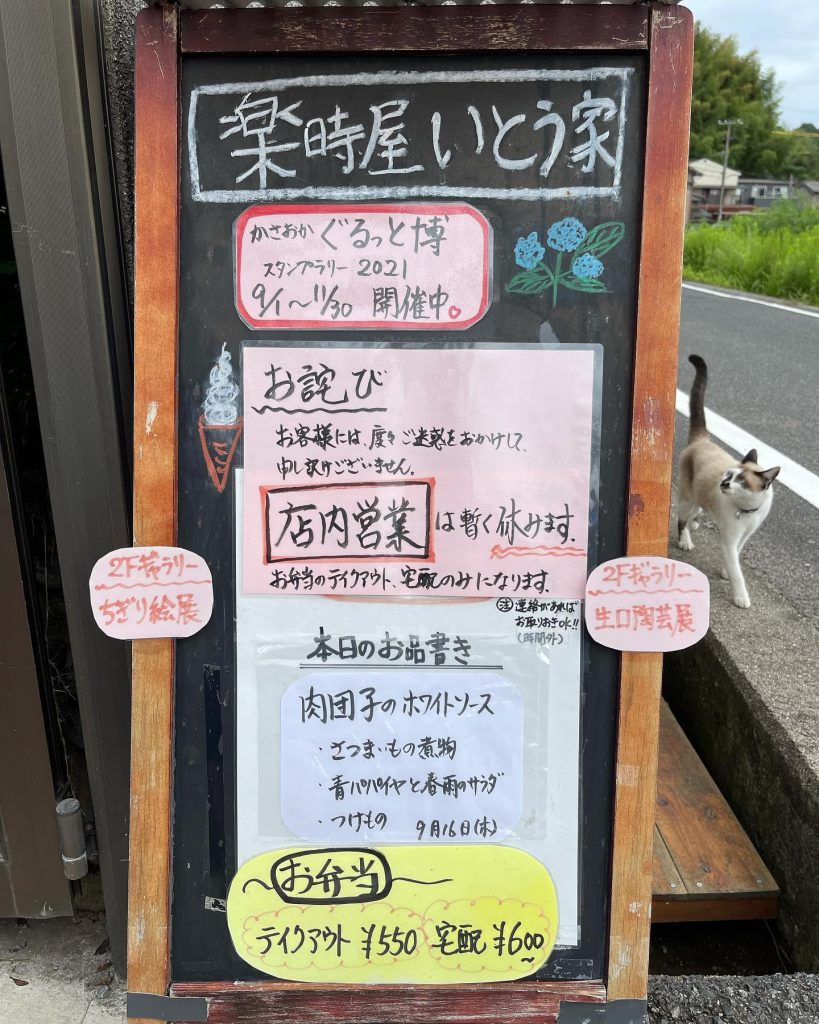 楽時屋いとう家
かさおか ぐるっと博
スタンプラリー 2021
9/1〜11/30 開催中
お詫び
お客様には、度々ご迷惑をおかけして、
申し訳けございません。
店内営業は暫く休みます。
お弁当のテイクアウト、宅配のみになります。
注 連絡があれば
お取りおきOK!!
(時間外)
2Fギャラリー
ちぎり絵展
2Fギャラリー
生口陶芸展
本日のお品書き
肉団子のホワイトソース
・さつまいもの煮物
・青パパイヤと春雨のサラダ
・つけもの 9月16日(木)
お弁当
テイクアウト ¥550 宅配 ¥600